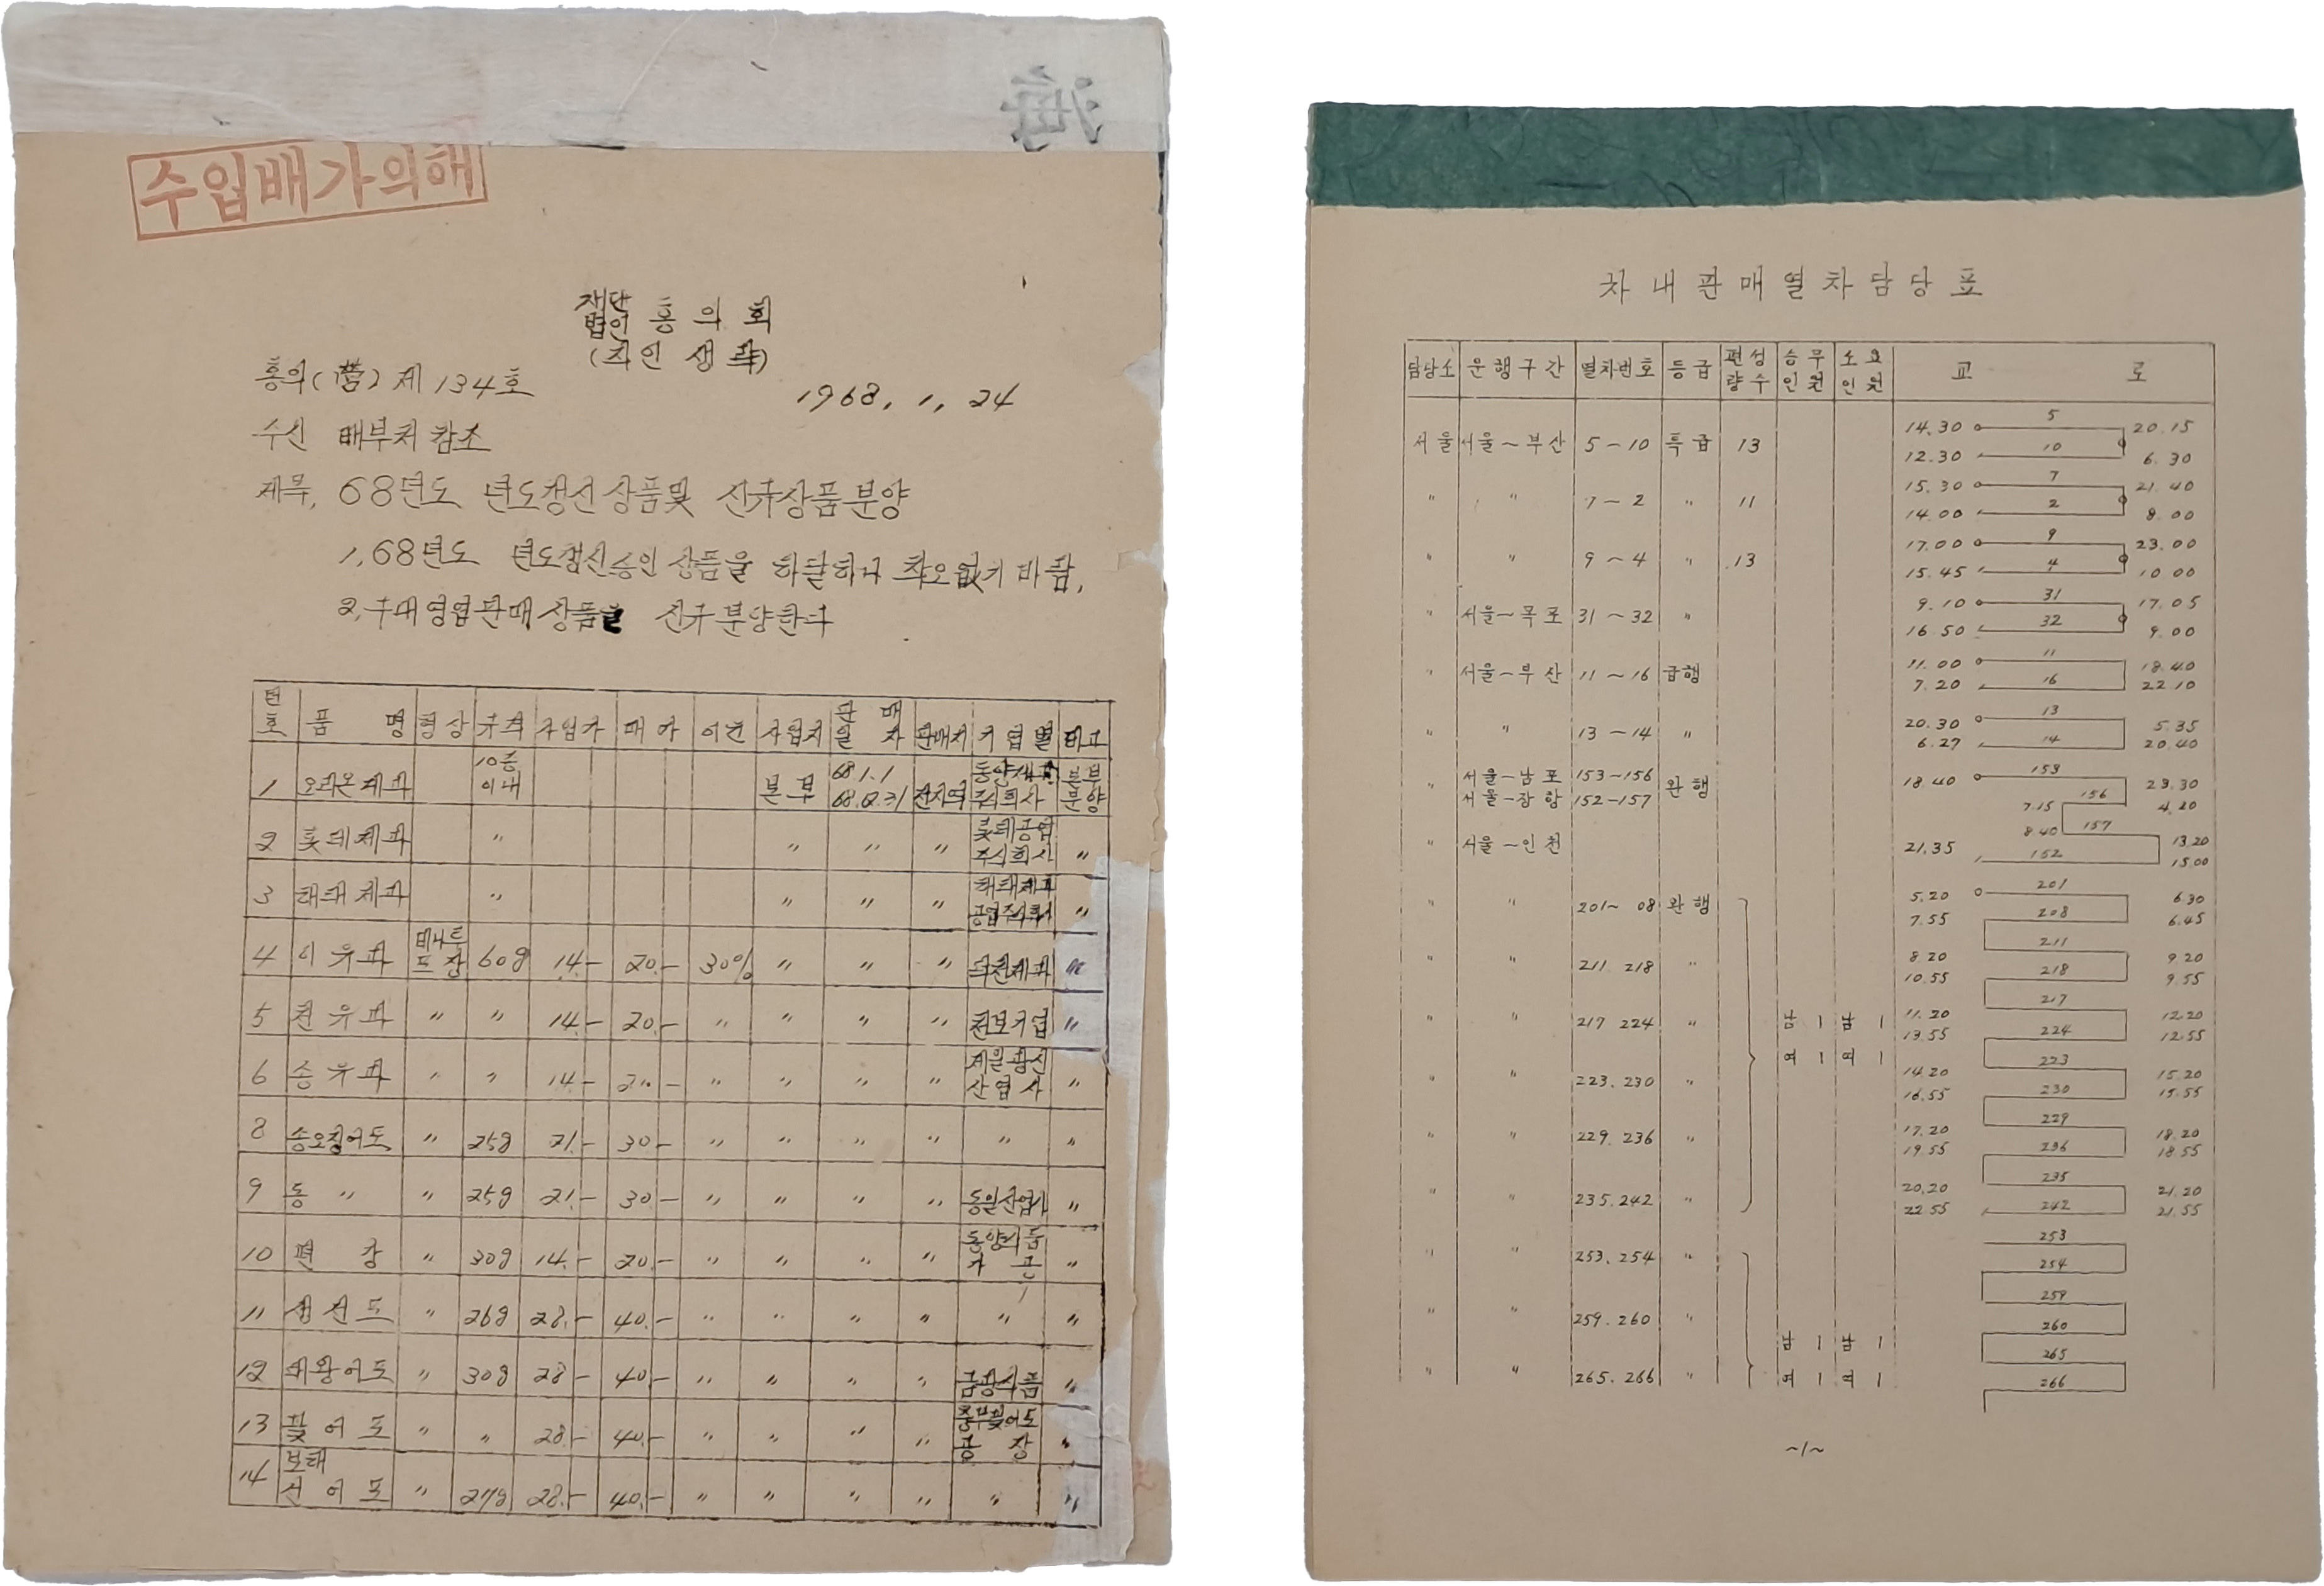 수입배가의해
재단법인 홍익회
(직인 생략)
홍익(營) 제 134호
1968. 1. 24
수신 배부처 참조
제목, 68년도 년도갱신상품및 신규상품분양
1. 68년도 년도갱신승인 상품을 하달하니 착오없기 바람.
2. 구내영업판매상품을 신규분양한다
번호 품명 형상 규격 구입가 매가 이건 구입처 판매일자 판매처 기업별 비고
1 오리온제과 10종이내 본부 68.1.1 전지역 동양제과주식회사 본부분양
2 롯데제과 〃 〃 〃 〃 롯데공업주식회사 〃
3 해태제과 〃 〃 〃 〃 해태제과공업주식회사 〃
4 미유과 60g 14.- 20.- 30% 〃 〃 〃 〃
5 천유과 〃 〃 14.- 20.- 〃 〃 〃 〃 천보기업 〃
6 송유과 〃 〃 14.- 20.- 〃 〃 〃 〃 산업사 〃
8 송오징어포 〃 25g 21.- 30.- 〃 〃 〃 〃 〃 〃
9 동 〃 〃 25g 21.- 30.- 〃 〃 〃 〃 동일산업사 〃
10 편강 〃 30g 14.- 20.- 〃 〃 〃 〃 동양식품가공 〃
11 생선포 〃 26g 28.- 40.- 〃 〃 〃 〃 〃 〃
12 대왕어포 〃 30g 28.- 40.- 〃 〃 〃 〃 금광식품 〃
13 꽃어포 〃 〃 28.- 40.- 〃 〃 〃 〃 공장 〃
14 선어포 〃 27g 28.- 40.- 〃 〃 〃 〃 〃 〃
차내판매열차담당표
담당소 운행구간 열차번호 등급 편성량수 승무인원 소요인원 교로
서울 서울~부산 5~10 특급 13 14.30 5 20.15
12.30 10 6.30
〃 〃 7~2 〃 11 15.30 7 21.40
14.00 2 8.00
〃 〃 9~4 〃 13 17.00 9 23.00
15.45 4 10.00
〃 서울~목포 31~32 〃 9.10 31 17.05
16.50 32 9.00
〃 서울~부산 11~16 급행 11.00 11 18.40
7.20 16 22.10
〃 〃 13~14 〃 20.30 13 5.35
6.27 14 20.40
〃 서울~남포 153~156 완행 18.40 153 23.30
서울~장항 152~157 7.15 156 4.20
8.40 157 13.20
〃 서울~인천 21.35 152 15.00
〃 〃 201~08 완행 5.20 201 6.30
7.55 208 6.45
〃 〃 211 218 〃 8.20 211 9.20
10.55 218 9.55
〃 〃 217 224 〃 남 1 남 1 11.20 217 12.20
13.55 224 12.55
여 1 여 1
〃 〃 223. 230 〃 14.20 223 15.20
16.55 230 15.55
〃 〃 229. 236 〃 17.20 229 18.20
19.55 236 18.55
〃 〃 235. 242 〃 20.20 235 21.20
22.55 242 21.55
〃 〃 253. 254 〃 253
254
〃 〃 259. 260 〃 259
260
남 1 남 1
〃 〃 265. 266 〃 여 1 여 1 265
266
~1~